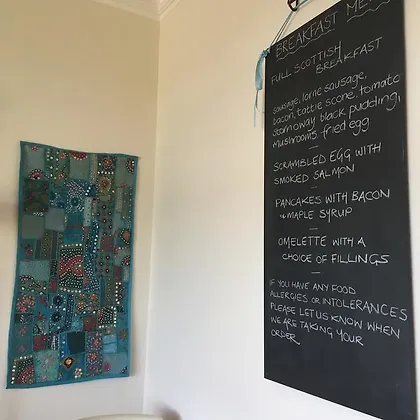 BREAKFAST ME
FULL SCOTTISH
BREAKFAST
sausage, lorne sausage,
bacon, tattie scone, tomato
stornoway black pudding,
mushrooms, fried egg
SCRAMBLED EGG WITH
SMOKED SALMON
PANCAKES WITH BACON
& MAPLE SYRUP
OMELETTE WITH A
CHOICE OF FILLINGS
IF YOU HAVE ANY FOOD
ALLERGIES OR INTOLERANCES
PLEASE LET US KNOW WHEN
WE ARE TAKING YOUR
ORDER